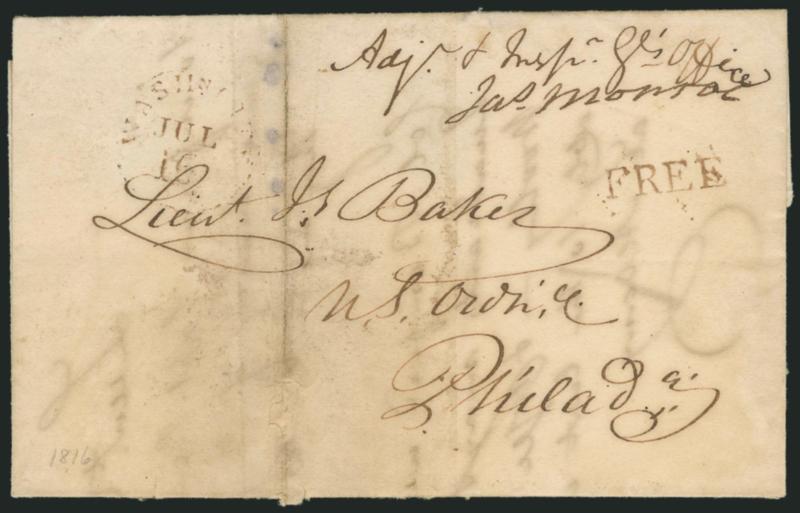 Adjt. & Inspr. Gl's Office
Jas Monroe
WASHIN
JUL
FREE
Lieut. Js Baker
U.S. Ordn,ce.
Philada.
1816